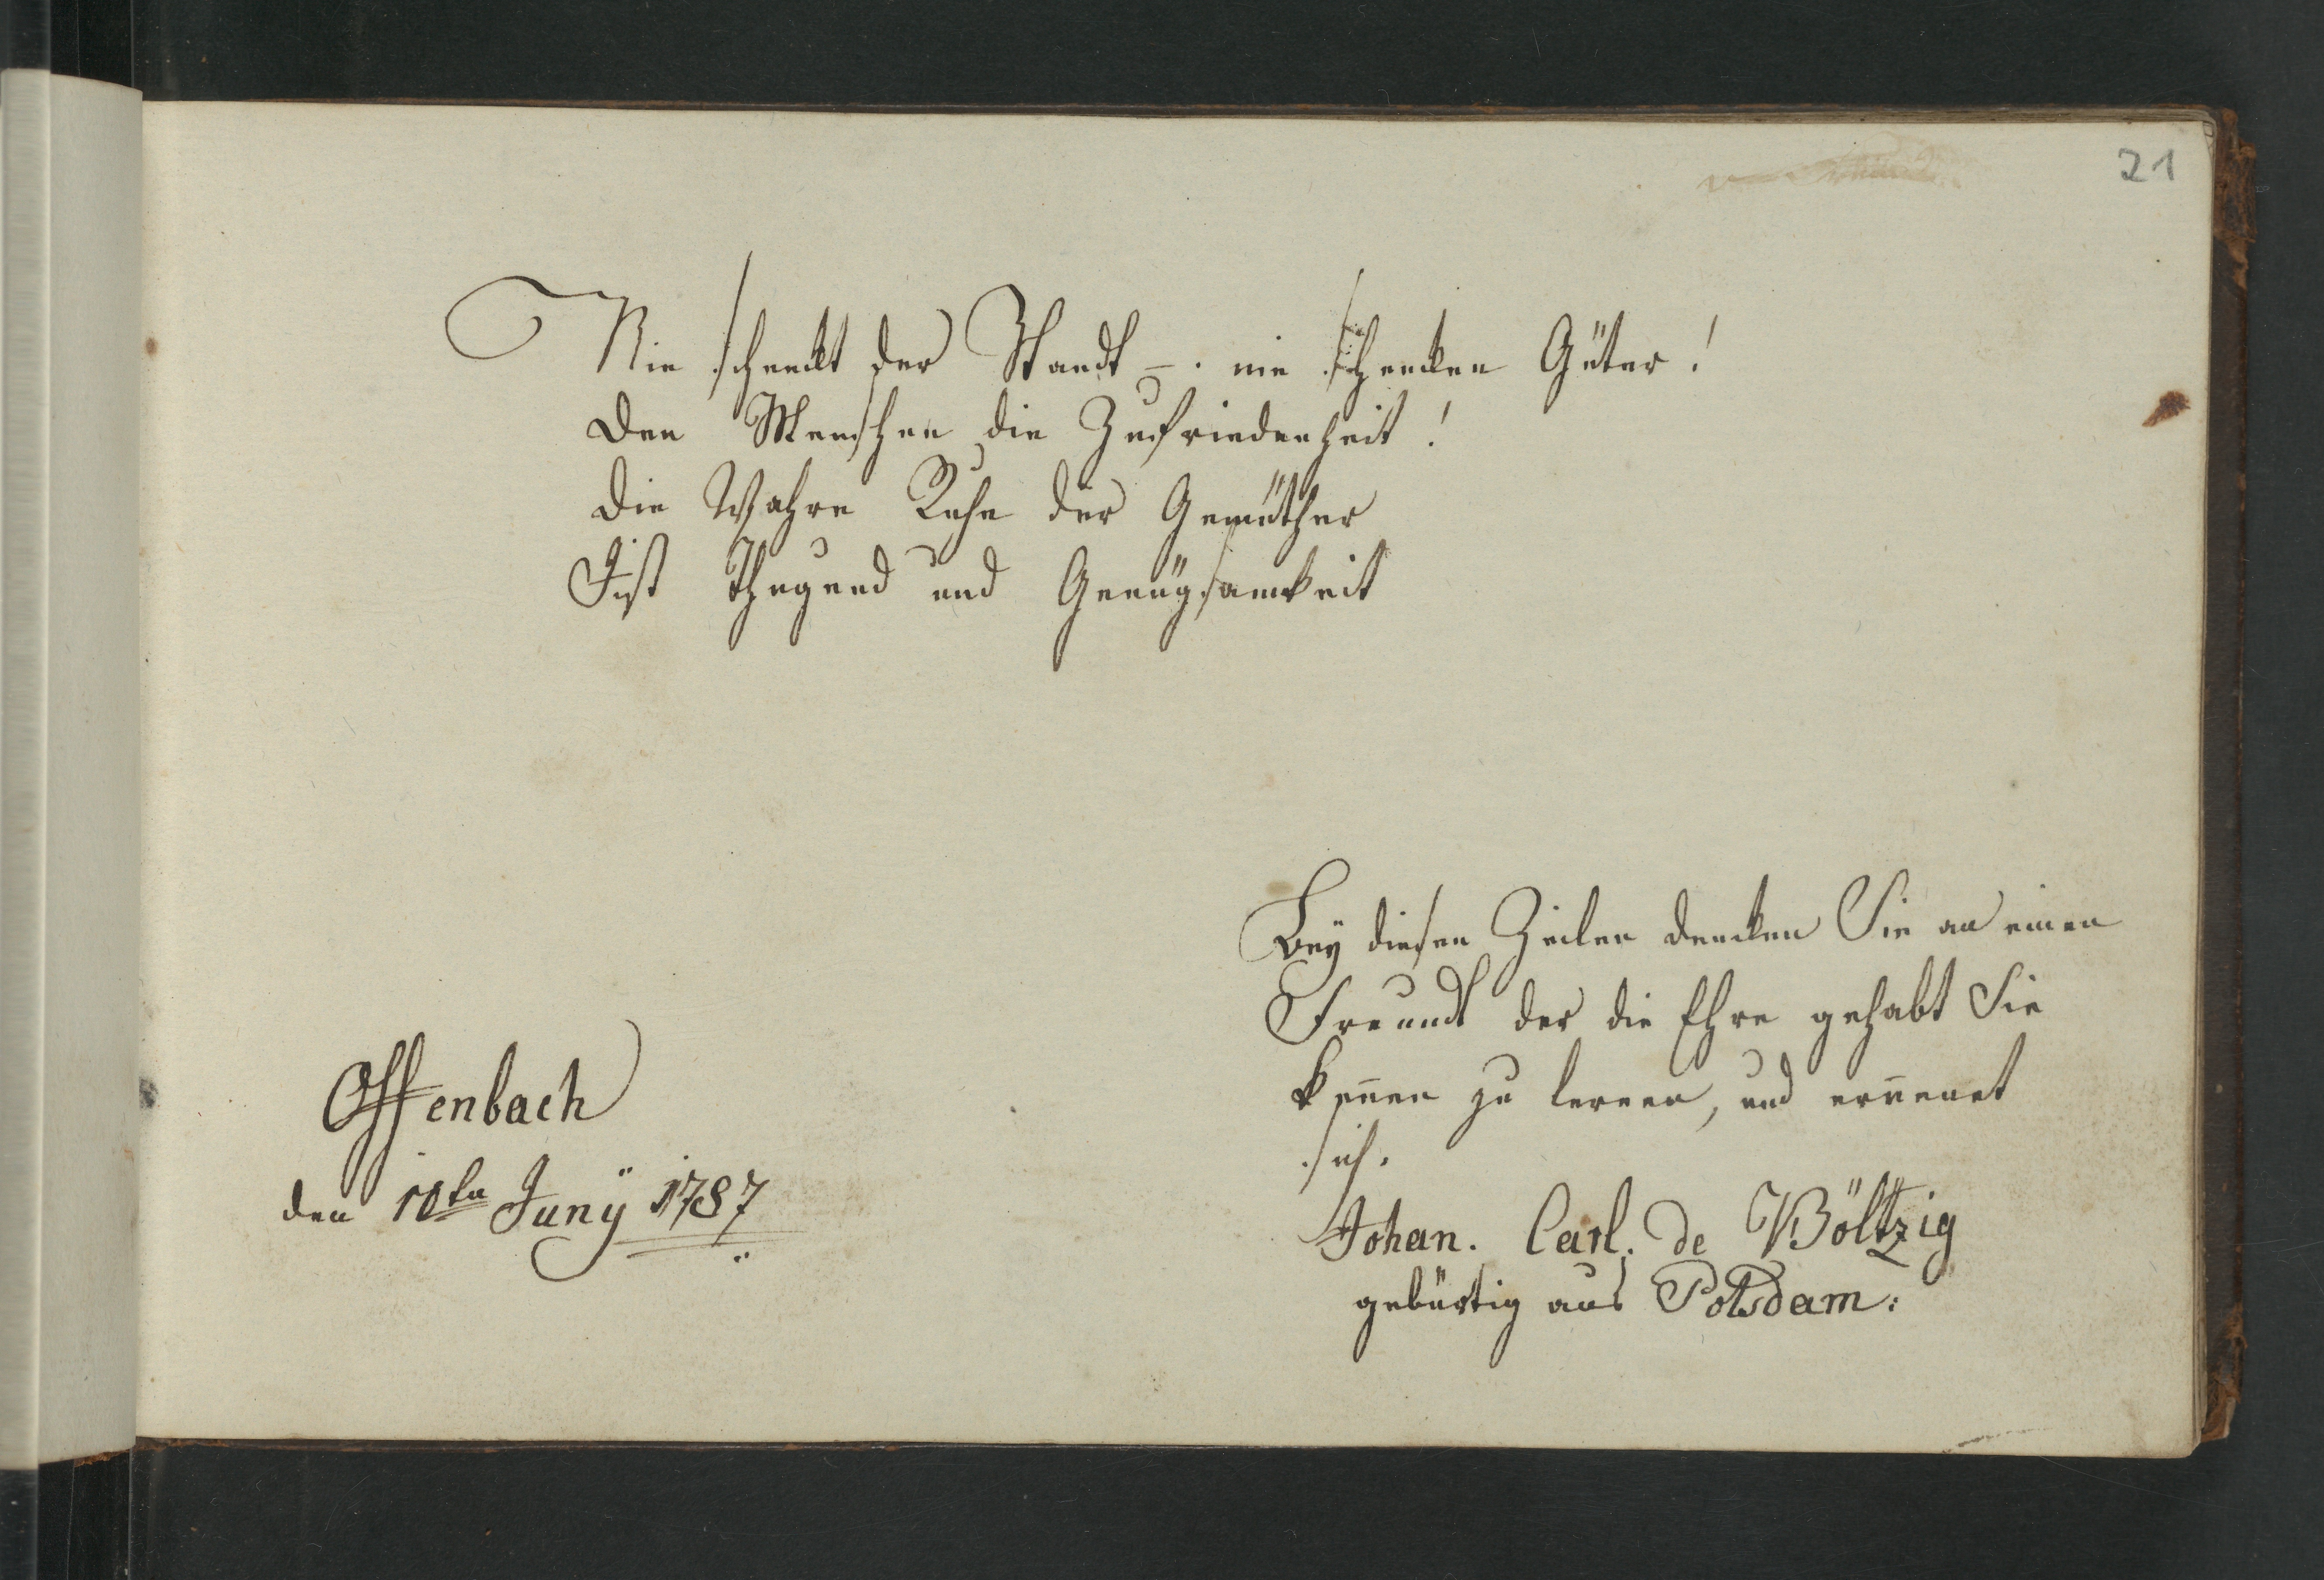 21
Nie schenckt der Standt –. nie schencken Güter!
Den Menschen die Zufriedenheit!
Die Wahre Ruhe der Gemüther
Ist Thugend und Genügsamkeit
Bey diesen Zeilen dencken Sie an einen
Freundt der die Ehre gehabt Sie
keñen zu lernen, und erñenet
sich.
Johan. Carl. de Böltzig
gebürtig aus Potsdam:
Offenbach
den 10ten Junÿ 1787